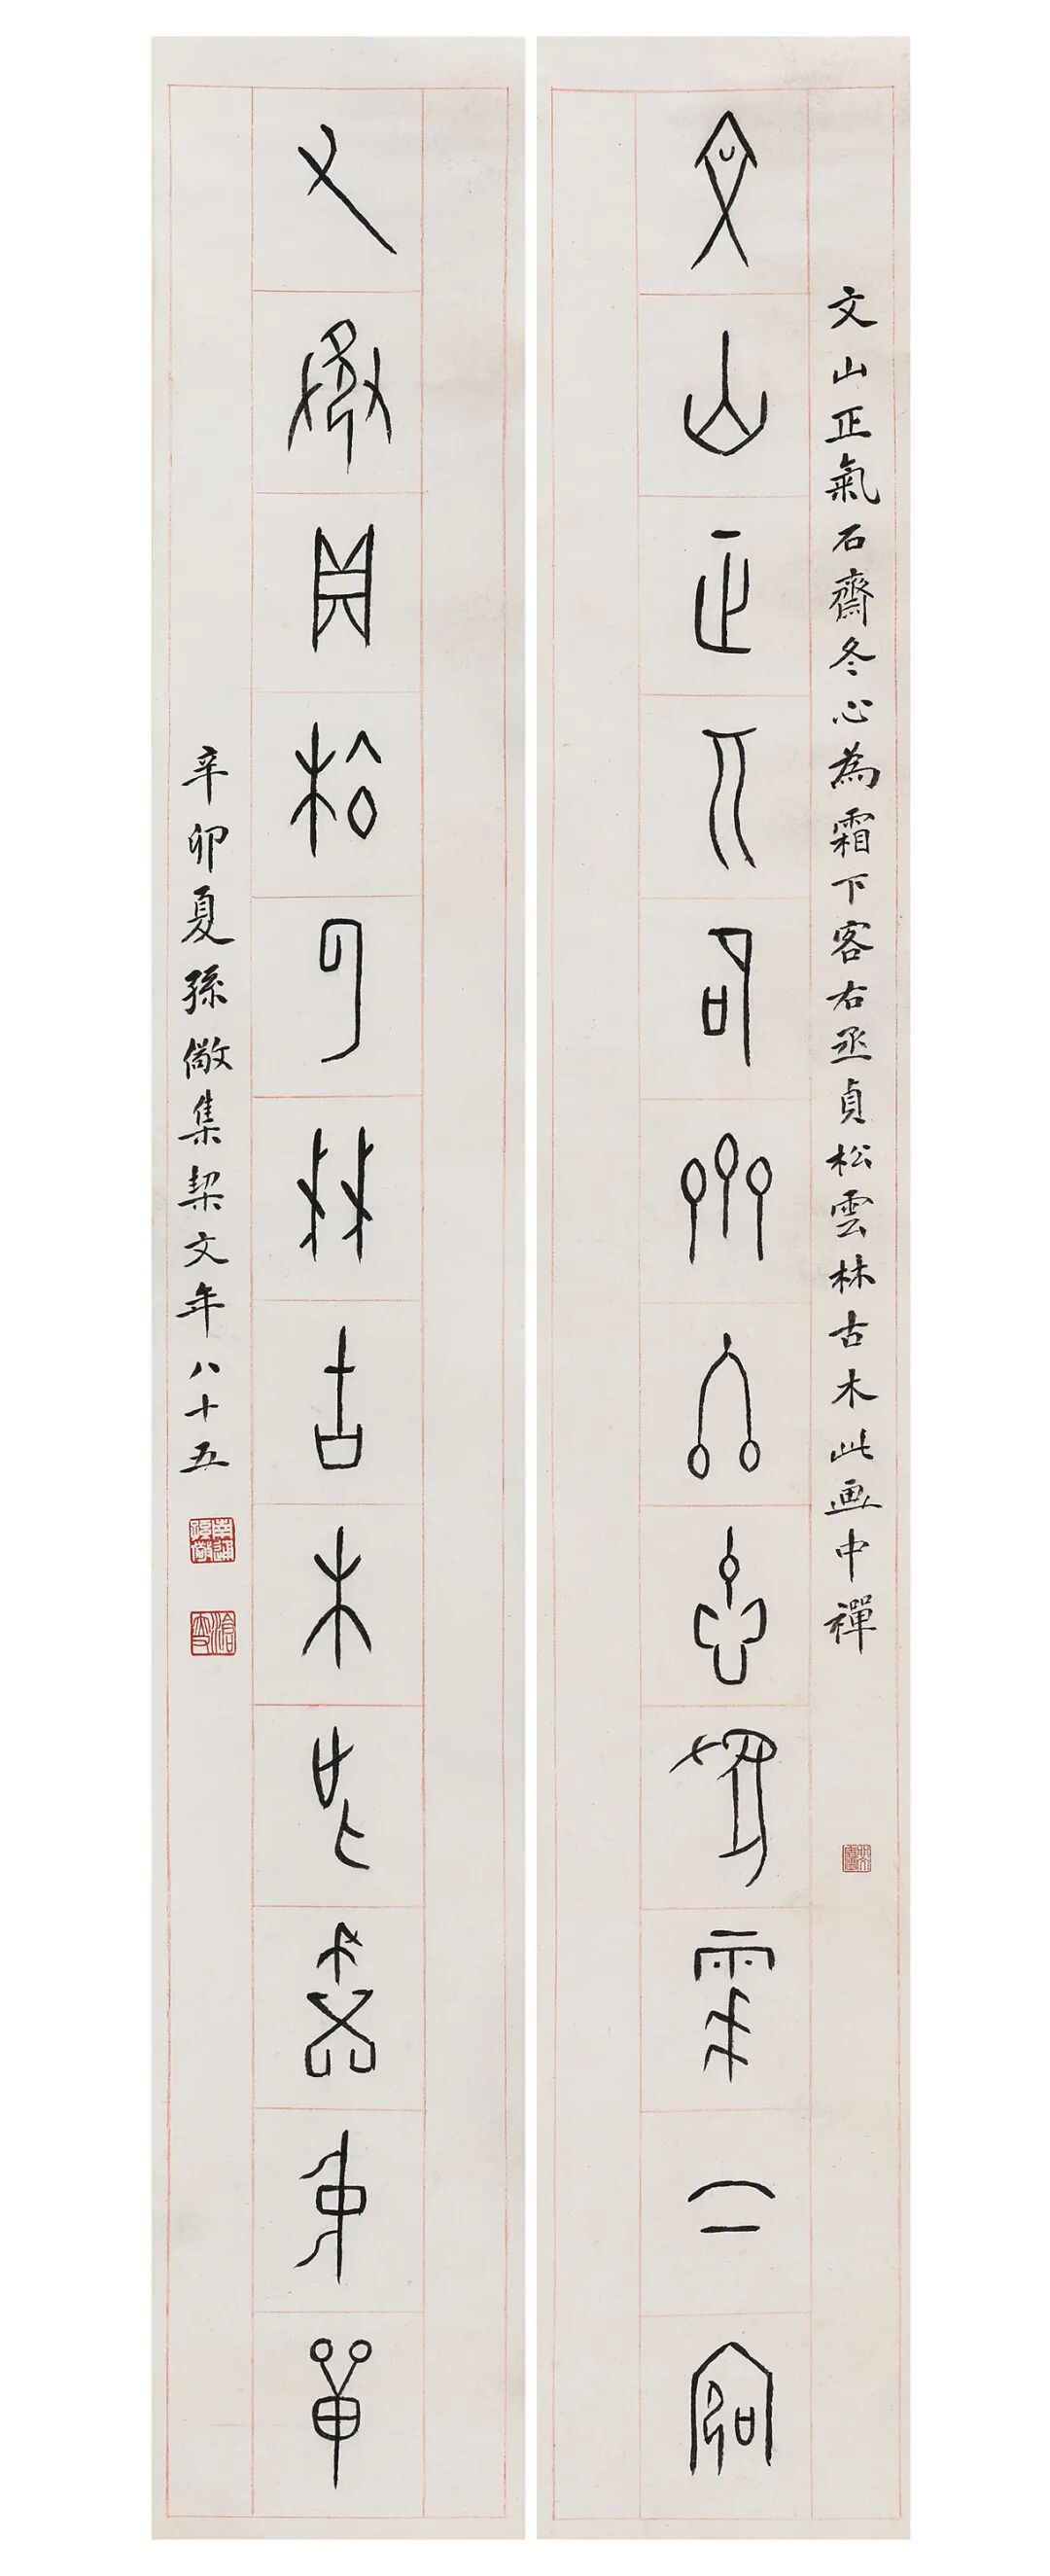 文山正氣石齋冬心為霜下客右丞貞松雲林古木此画中禪
文山正气石齋冬心為霜下客
右丞貞松雲林古木此画中禪
辛卯夏孫儆集栔文年八十五
南通孫儆
滄叟